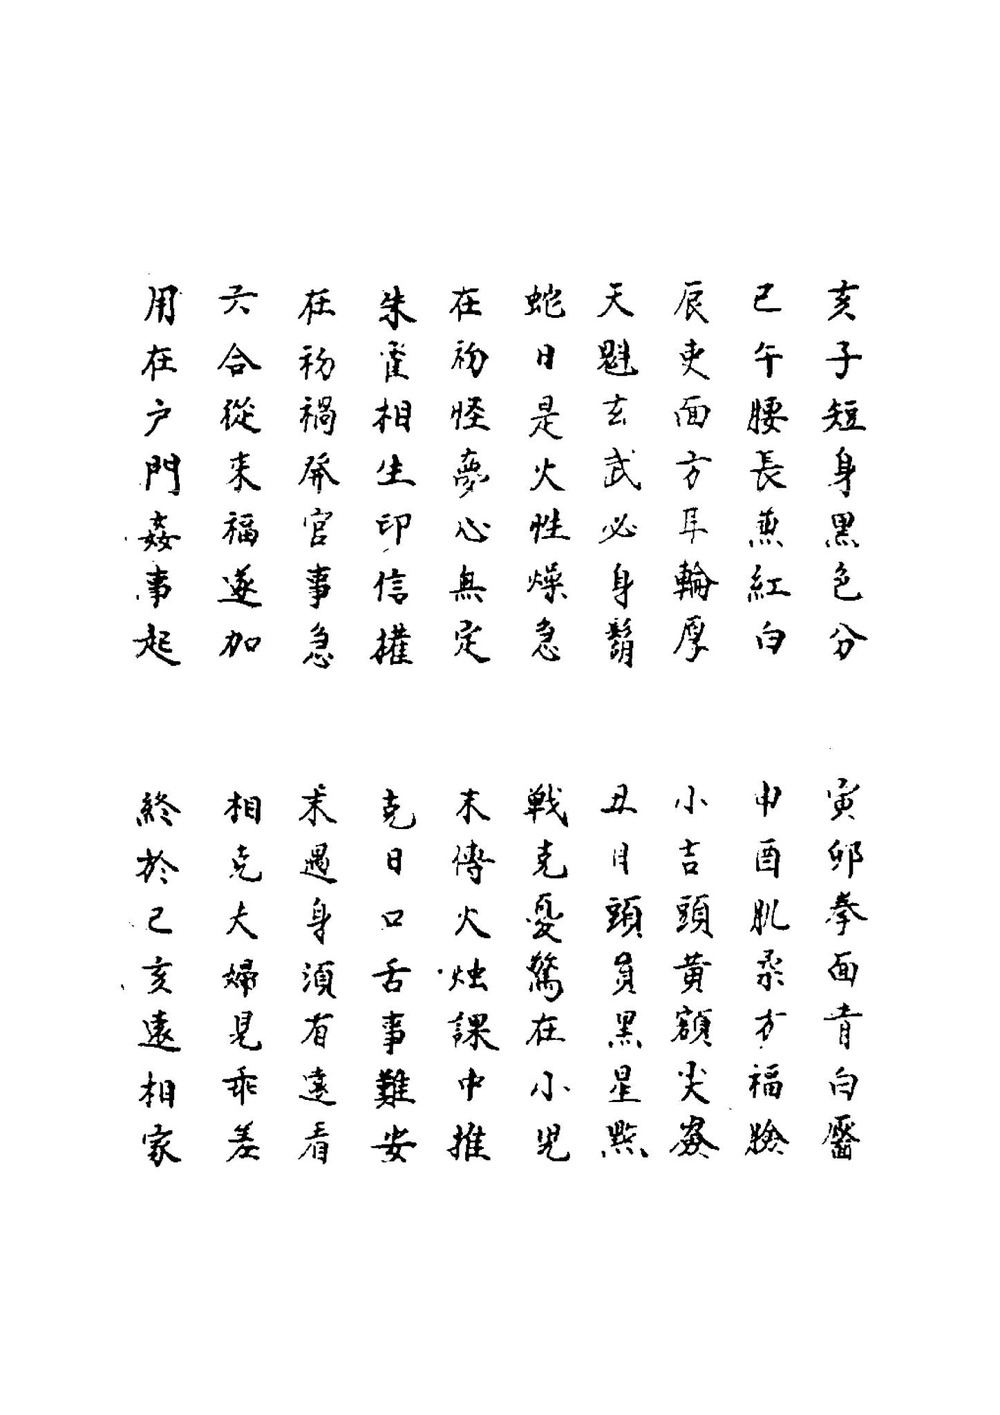 亥子短身黑色分 寅卯拳面青白醫
已午腰長蕉紅白 申酉肌柔方福臉
辰吏面方耳輪厚 小吉頭黃額尖
天魁玄武必身鬍 丑月頭員黑星點
蛇日是火性燥急 戰克憂驚在小児
在初怪夢心無定 末傳火烛課中推
朱雀相生印信權 克日口舌事難安
在初禍發官事急 末遇身須有遠看
六合從来福遂加 相克夫婦見乖差
用在户門姦事起 終於已亥遠相家